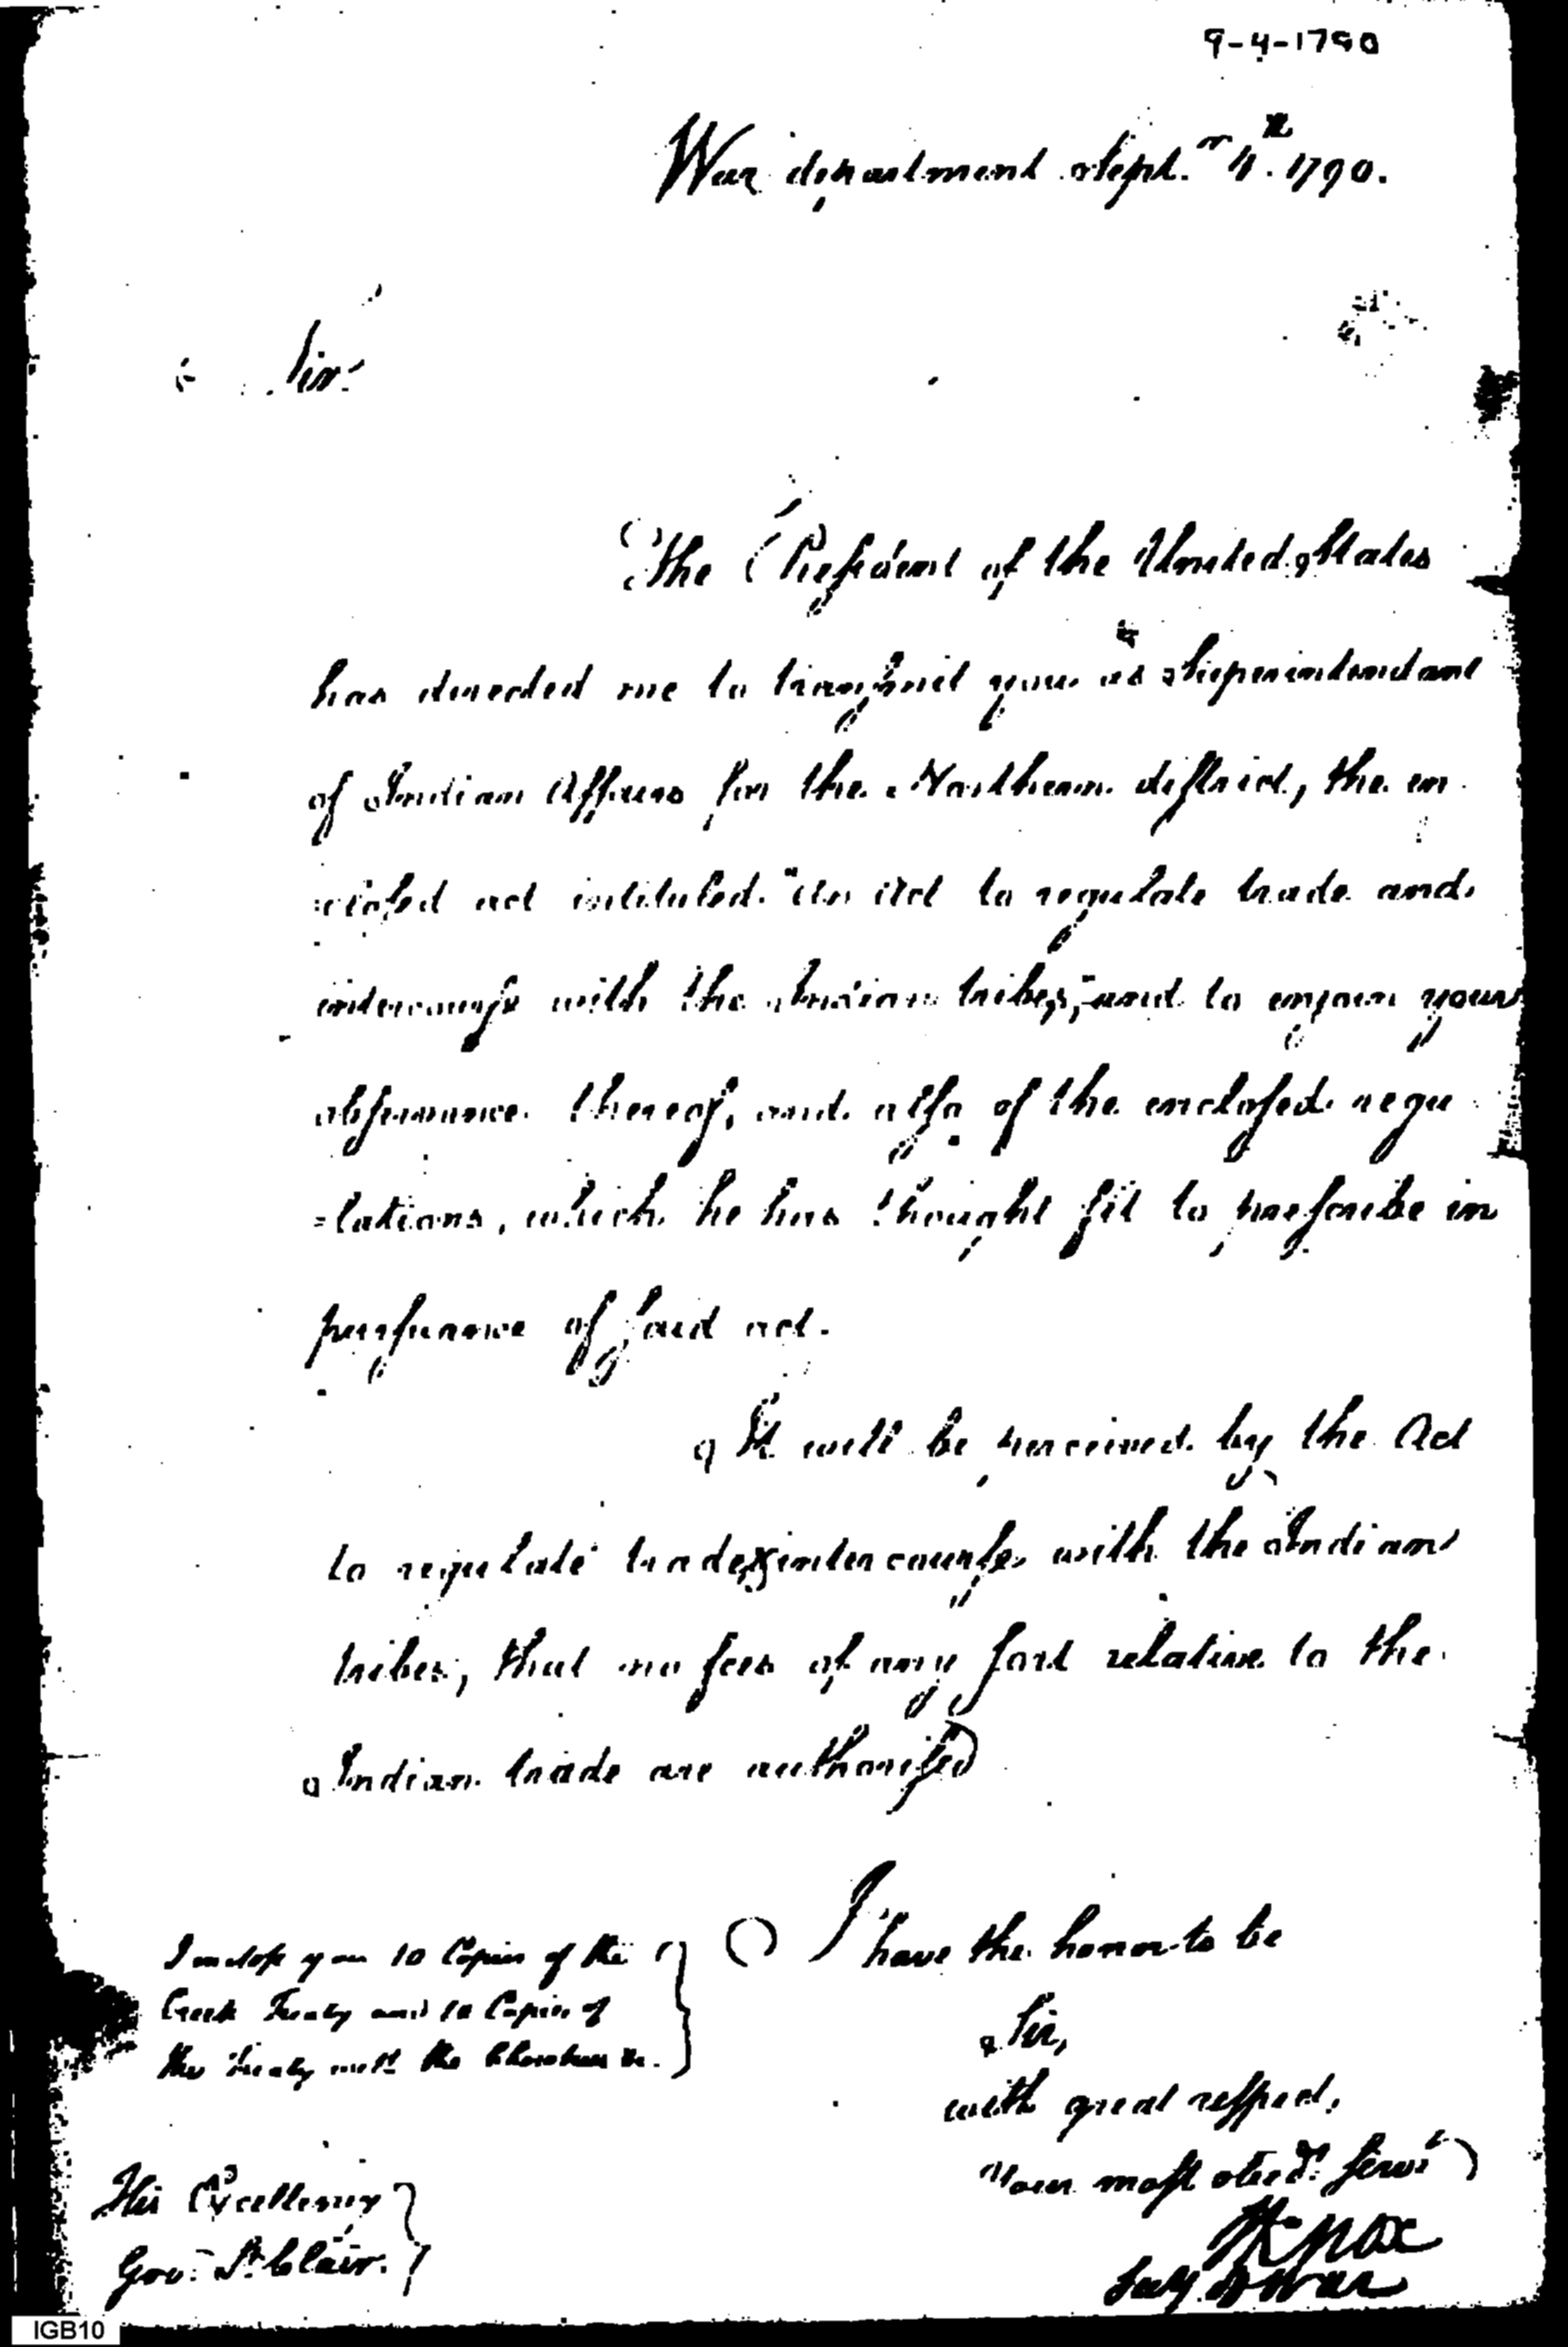 9-4-1790
War department Sept.r 4. 1790.
Sir.
The President of the United States
has directed me to transmit you as Superintendant
of Indian Affairs for the Northern district, the en
=closed act intituled "An Act to regulate trade and
intercourse with the Indian tribes," and to enjoin your
observance thereof, and also of the enclosed regu
=lations, which he has thought fit to prescribe in
pursuance of said act.
It will be perceived by the Act
to regulate trade & intercourse with the Indian
tribes, that no fees of any sort relative to the
Indian trade are authorised
I have the honor to be
Sir,
with great respect,
Your most obed.t Serv.t
HKnox
Secy of War
I enclose you 10 Copies of the
Creek Treaty and 10 Copies of
the Treaty with the Cherokees &c.
His Excellency
Gov.r St. Clair.
IGB10